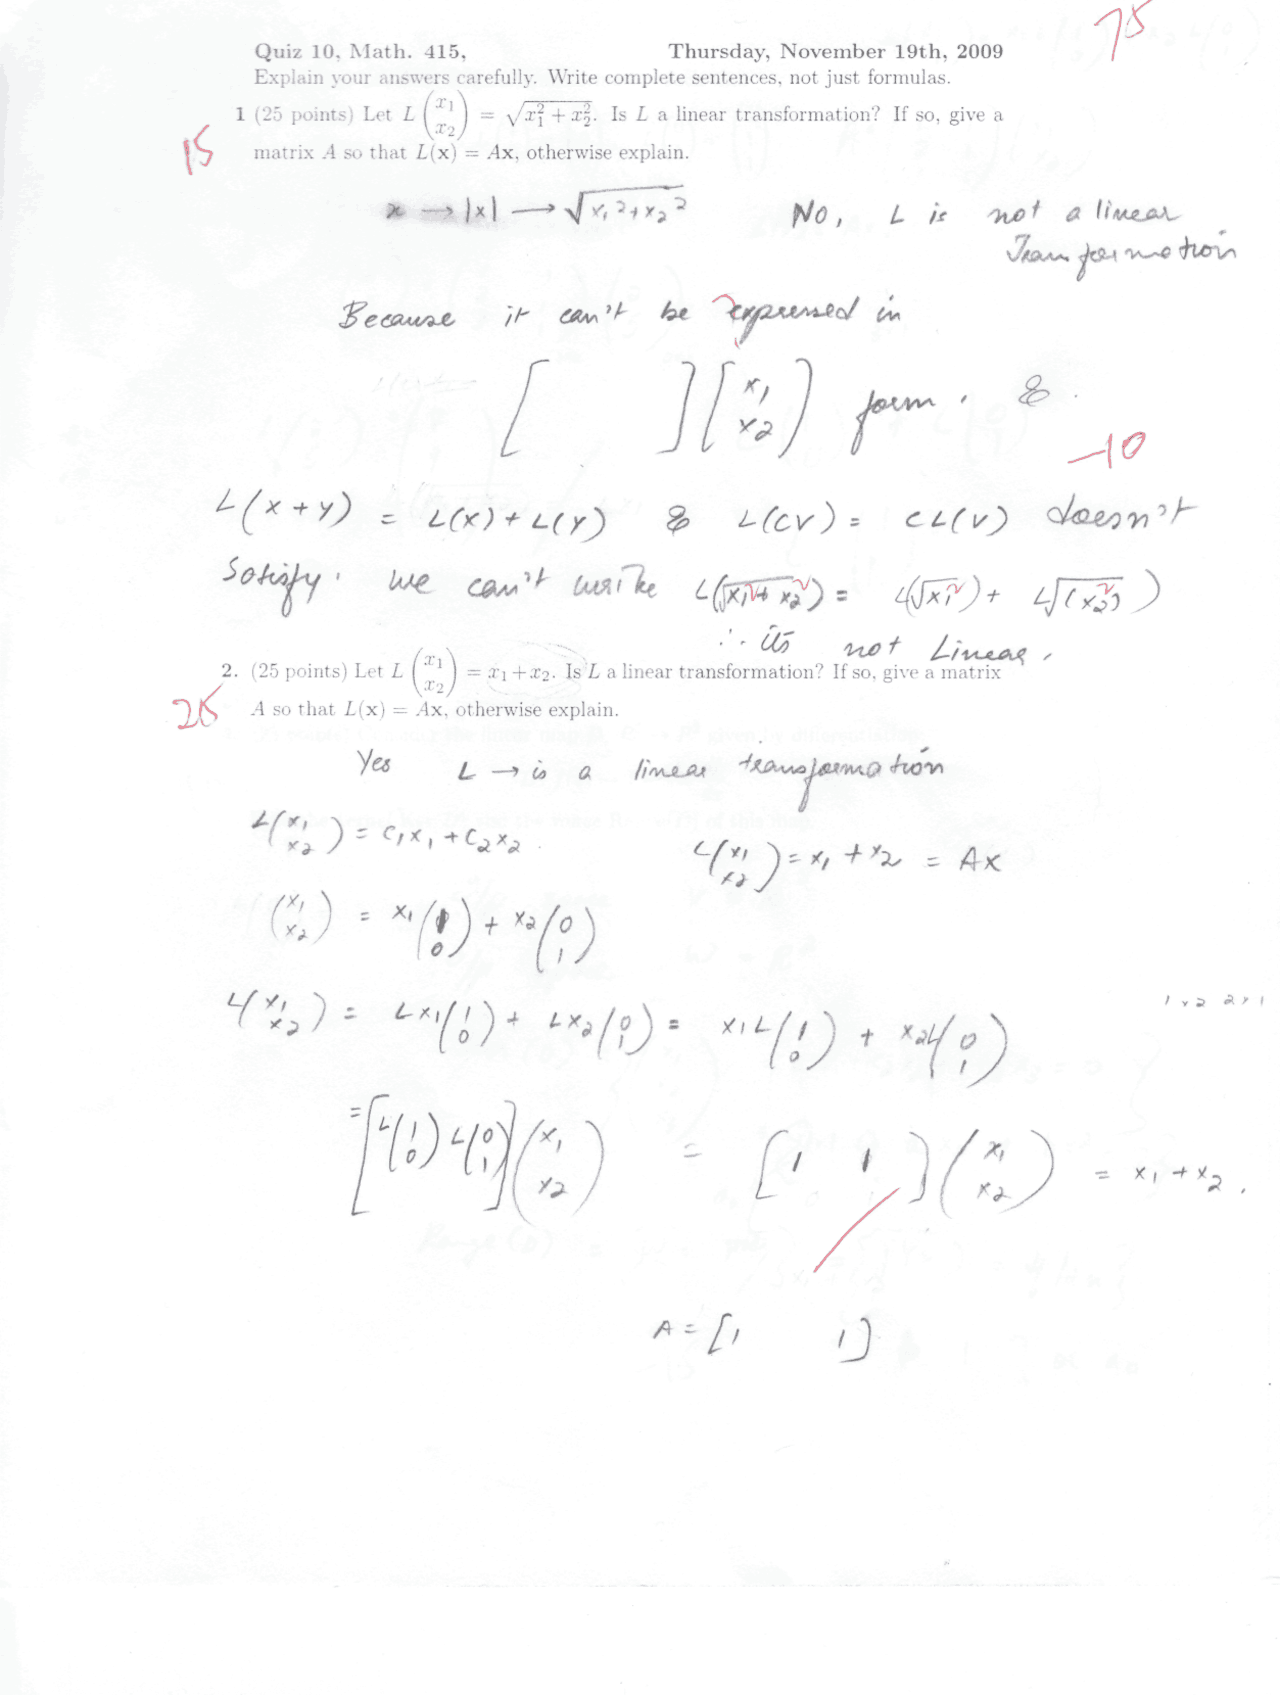 75
Quiz 10, Math. 415, Thursday, November 19th, 2009
Explain your answers carefully. Write complete sentences, not just formulas.
1 (25 points) Let L (x₁ x₂) = √(x₁² + x₂²). Is L a linear transformation? If so, give a
15
matrix A so that L(x) = Ax, otherwise explain.
x → |x| → √(x₁² + x₂²) No, L is not a linear
Transformation
Because it can't be expressed in
[ ] [x₁ x₂) form. &
-10
L(x + y) = L(x) + L(y) & L(cv) = cL(v) doesn't
Satisfy. we can't write L(√(x₁² + x₂²)) = L(√x₁²) + L√(x₂²))
∴ its not Linear.
2. (25 points) Let L (x₁ x₂) = x₁ + x₂. Is L a linear transformation? If so, give a matrix
25
A so that L(x) = Ax, otherwise explain.
Yes L → is a linear transformation
L(x₁ x₂) = c₁x₁ + c₂x₂. L(x₁ x₂) = x₁ + x₂ = Ax
(x₁ x₂) = x₁(1 0) + x₂(0 1)
L(x₁ x₂) = Lx₁(1 0) + Lx₂(0 1) = x₁L(1 0) + x₂L(0 1) 1x2 2x1
= [L(1 0) L(0 1)](x₁ x₂) = [1 1](x₁ x₂) = x₁ + x₂.
A = [1 1]